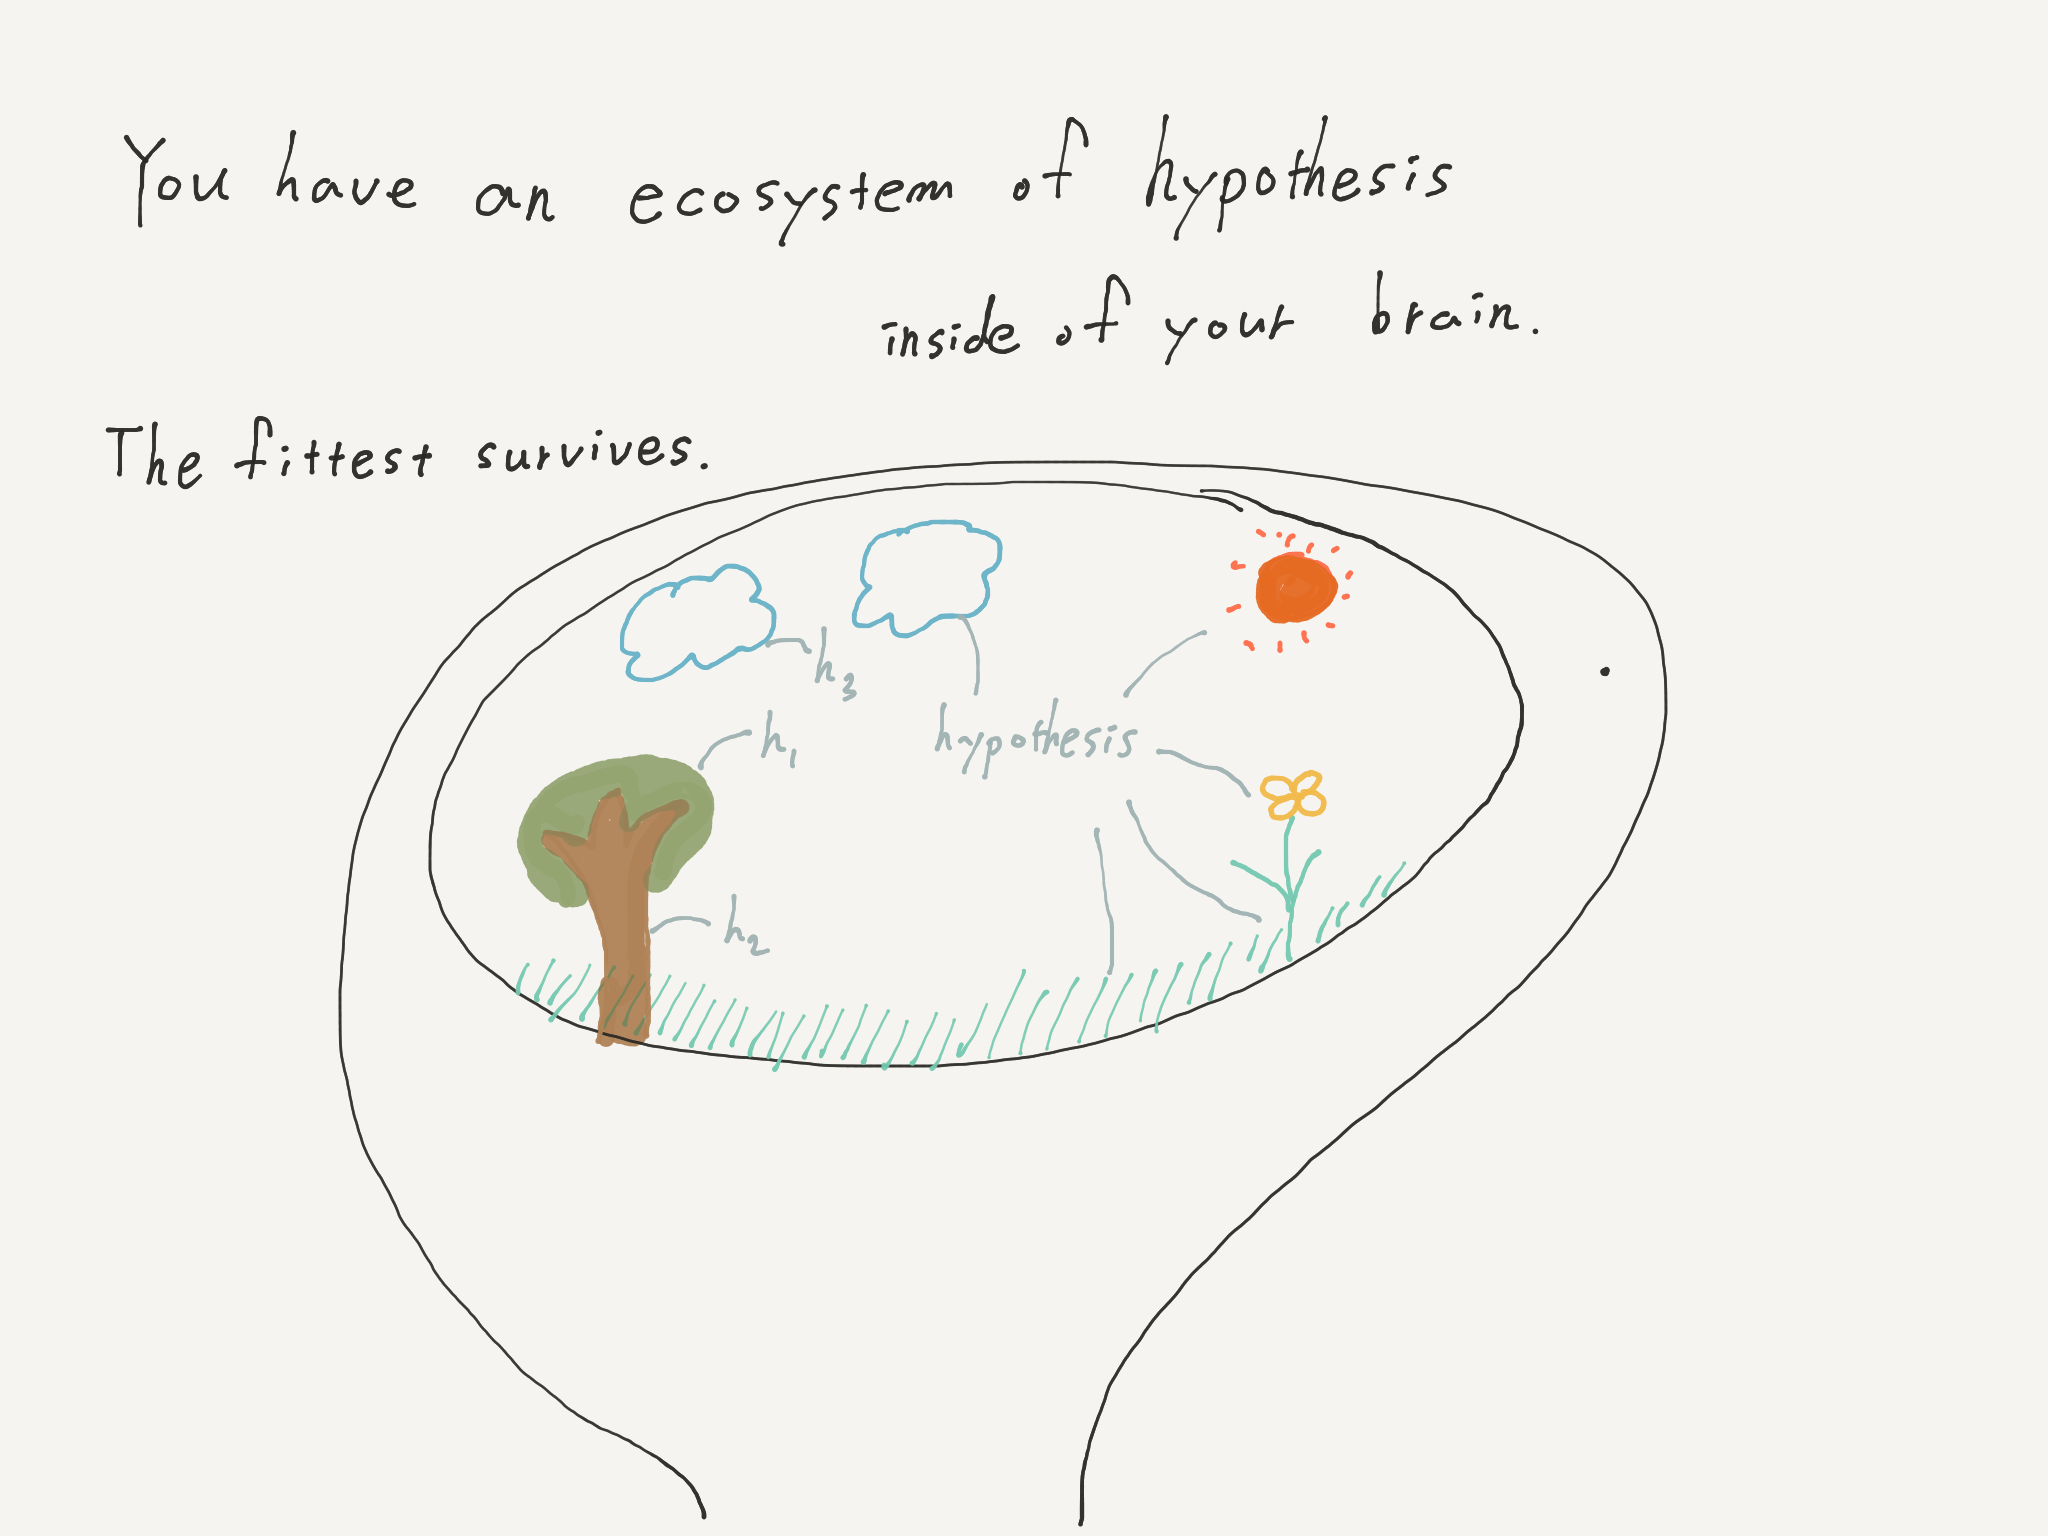 You have an ecosystem of hypothesis
inside of your brain.
The fittest survives.
h3
h1
hypothesis
h2